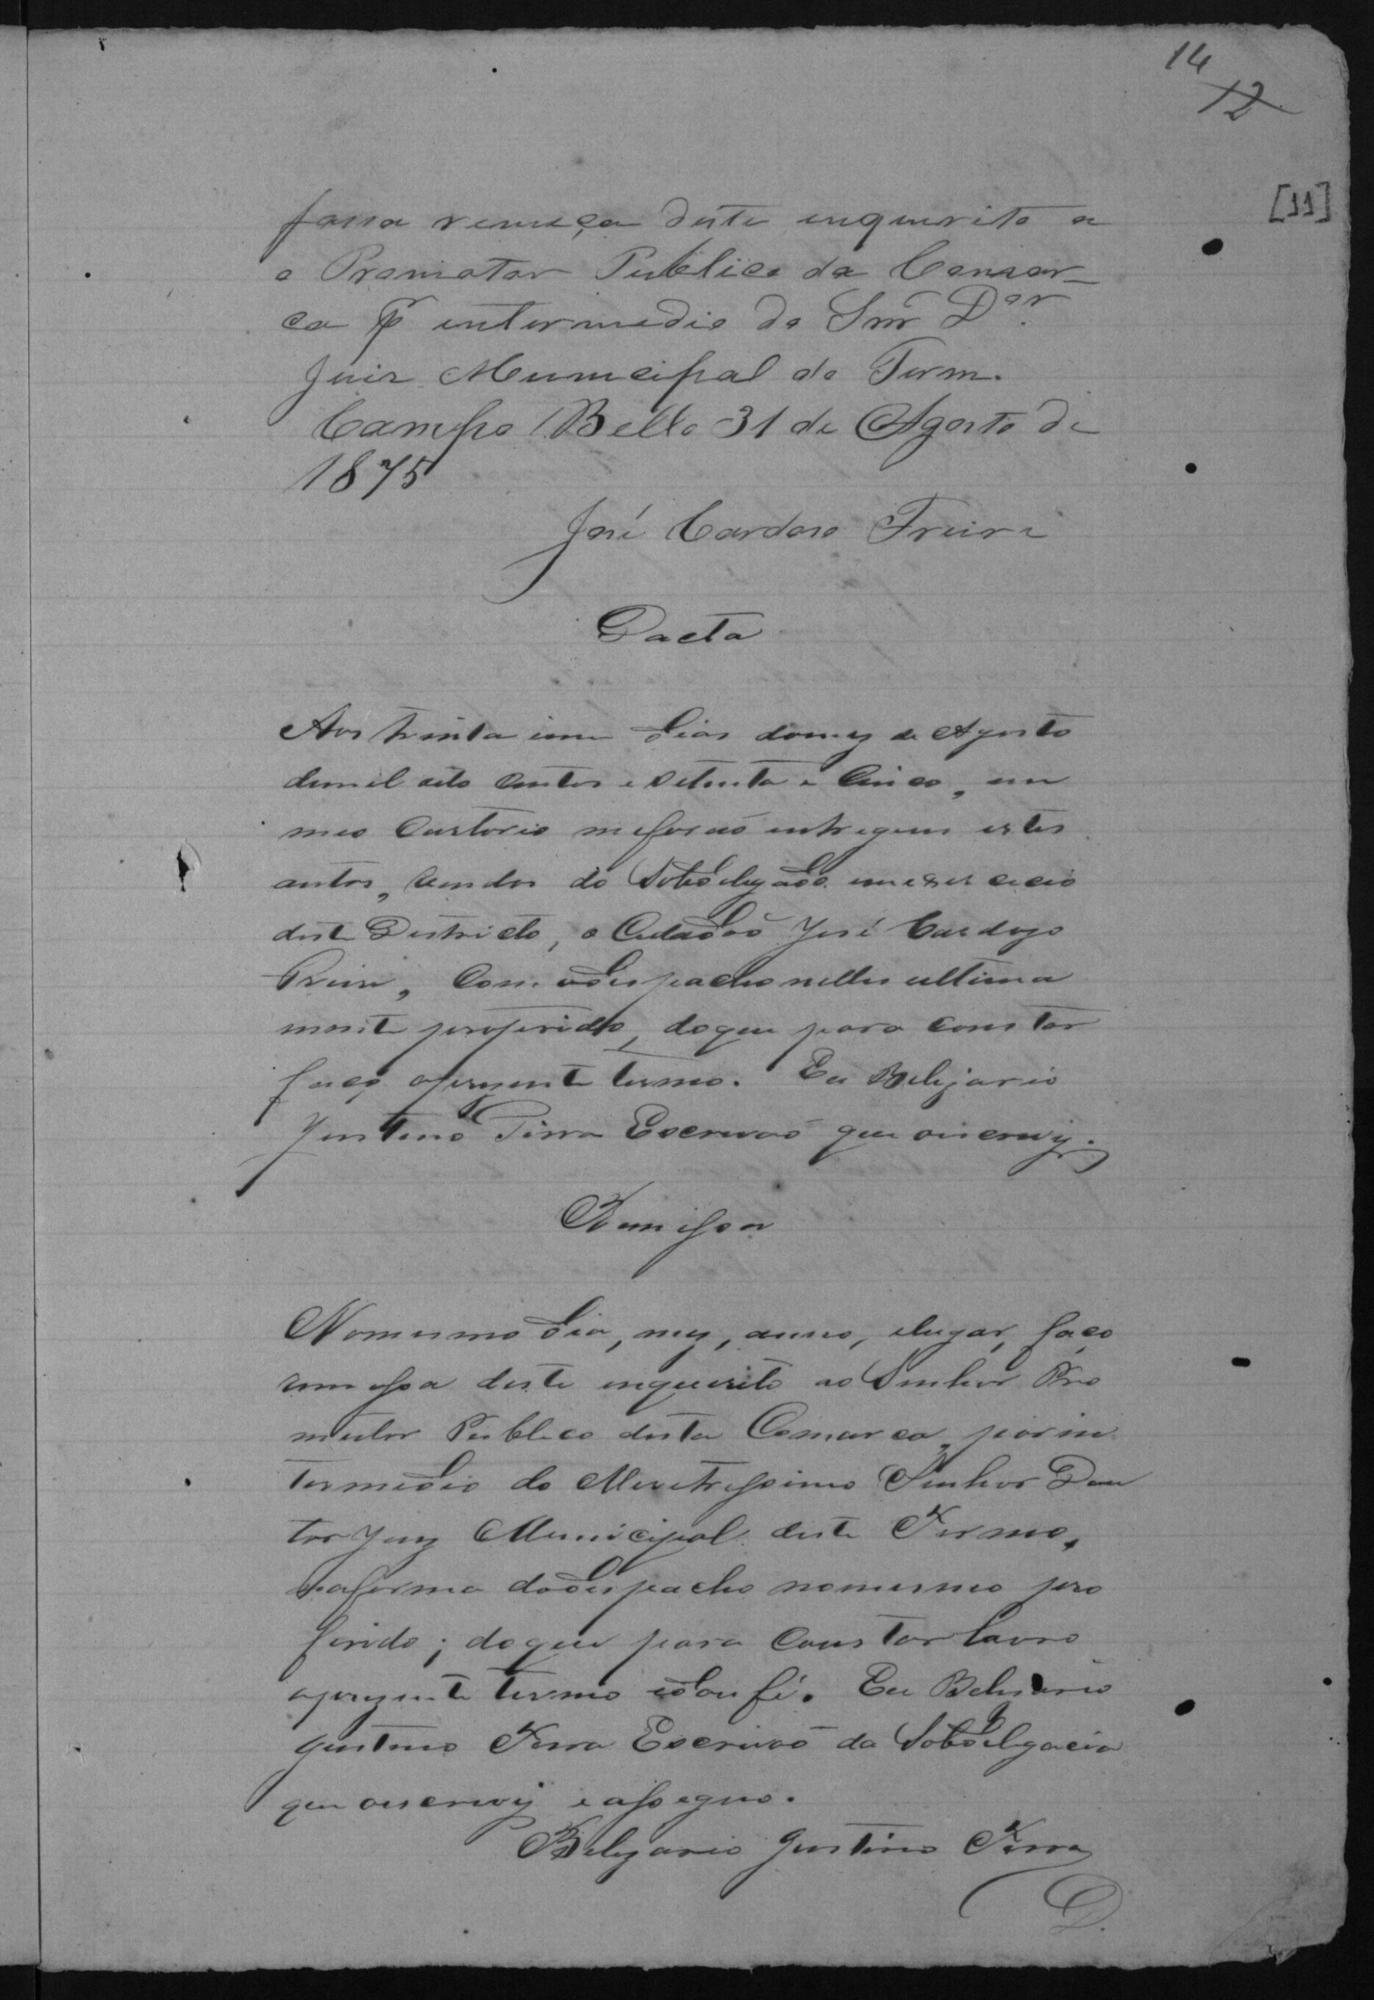 14
12
[11]
fassa remeça deste enquerito a
o Promotor Publico da Comar-
ca p̃ entermedio do Snr̃ D.or
Juis Municipal do Term.
Campo Bello 31 de Agosto de
1875
José Cardoso Freire
Dacta
Aos trinta ium dias domez de Agosto
demil oito centos e setenta e cinco, em
meo Cartorio meforão entregues estes
autos, vendos do Sobdelegado emexercicio
deste Districto, o Cidadão José Cardozo
Freire, com odespacho nelles ultima
mente proferido, doque para constar
faço oprezente termo. Eu Belizario
Justino Terra Escrivão que oescrevy.
Remissa
Nomesmo dia, mez, anno, elugar, faço
remessa deste enquerito ao Senhor Pro
mutor Publico desta Comarca, porin
termedio do Meretissimo Senhor Dou
tor Juiz Municipal deste Termo,
naforma dodespacho nomesmo pro
ferido; doque para constar lavro
oprezente termo edoufé. Eu Belizario
Justino Terra Escrivão da Sobdelegacia
que oescrevy eassegno.
Belizario Justino Terra
D.